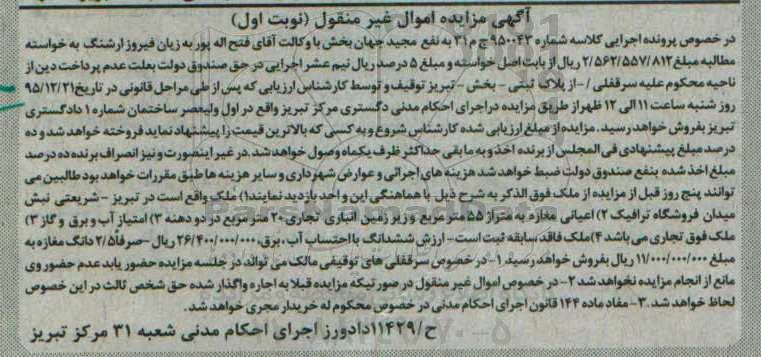 آگهی مزایده اموال غیر منقول (نوبت اول)
در خصوص پرونده اجرایی کلاسه شماره ۹۵۰۰۴۳ ج م ۳۱ به نفع مجید جهان بخش با وکالت آقای فتح اله پور به زیان فیروز ارشنگ به خواسته
مطالبه مبلغ ۲/۵۶۲/۵۵۷/۸۱۲ ریال از بابت اصل خواسته و مبلغ ۵ درصد ریال نیم عشر اجرایی در حق صندوق دولت بعلت عدم پرداخت دین از
ناحیه محکوم علیه سرقفلی /- از پلاک ثبتی - بخش - تبریز توقیف و توسط کارشناس ارزیابی که پس از طی مراحل قانونی در تاریخ ۹۵/۱۲/۲۱
روز شنبه ساعت ۱۱ الی ۱۲ ظهر از طریق مزایده در اجرای احکام مدنی دگستری مرکز تبریز واقع در اول ولیعصر ساختمان شماره ۱ دادگستری
تبریز بفروش خواهد رسید. مزایده از مبلغ ارزیابی شده کارشناس شروع و به کسی که بالاترین قیمت را پیشنهاد نماید فروخته خواهد شد و ده
درصد مبلغ پیشنهادی فی المجلس از برنده اخذ و به مابقی حداکثر ظرف یکماه وصول خواهد شد. در غیر اینصورت و نیز انصراف برنده ده درصد
مبلغ اخذ شده بنفع صندوق دولت ضبط خواهد شد هزینه های اجرائی و عوارض شهرداری و سایر هزینه ها طبق مقررات خواهد بود طالبین می
توانند پنج روز قبل از مزایده از ملک فوق الذکر به شرح ذیل با هماهنگی این واحد بازدید نمایند ۱) ملک واقع است در تبریز - شریعتی نبش
میدان فروشگاه ترافیک ۲) اعیانی مغازه به متراژ ۵۵ متر مربع و زیر زمین انباری تجاری ۲۰ متر مربع در دو دهنه ۳) امتیاز آب و برق و گاز ۳)
ملک فوق تجاری می باشد ۴) ملک فاقد سابقه ثبت است - ارزش ششدانگ با احتساب آب، برق، ۲۶/۴۰۰/۰۰۰/۰۰۰ ریال - صرفاً ۲/۵ دانگ مغازه به
مبلغ ۱۱/۰۰۰/۰۰۰/۰۰۰ ریال بفروش خواهد رسید ۱- در خصوص سرقفلی های توقیفی مالک می تواند در جلسه مزایده حضور یابد عدم حضور وی
مانع از انجام مزایده نخواهد شد ۲- در خصوص اموال غیر منقول در صورتیکه مزایده قبلا به اجاره واگذار شده حق شخص ثالث در این خصوص
لحاظ خواهد شد. ۳- مفاد ماده ۱۴۴ قانون اجرای احکام مدنی در خصوص محکوم له خریدار مجری خواهد شد.
ح/۱۱۴۲۹ دادورز اجرای احکام مدنی شعبه ۳۱ مرکز تبریز